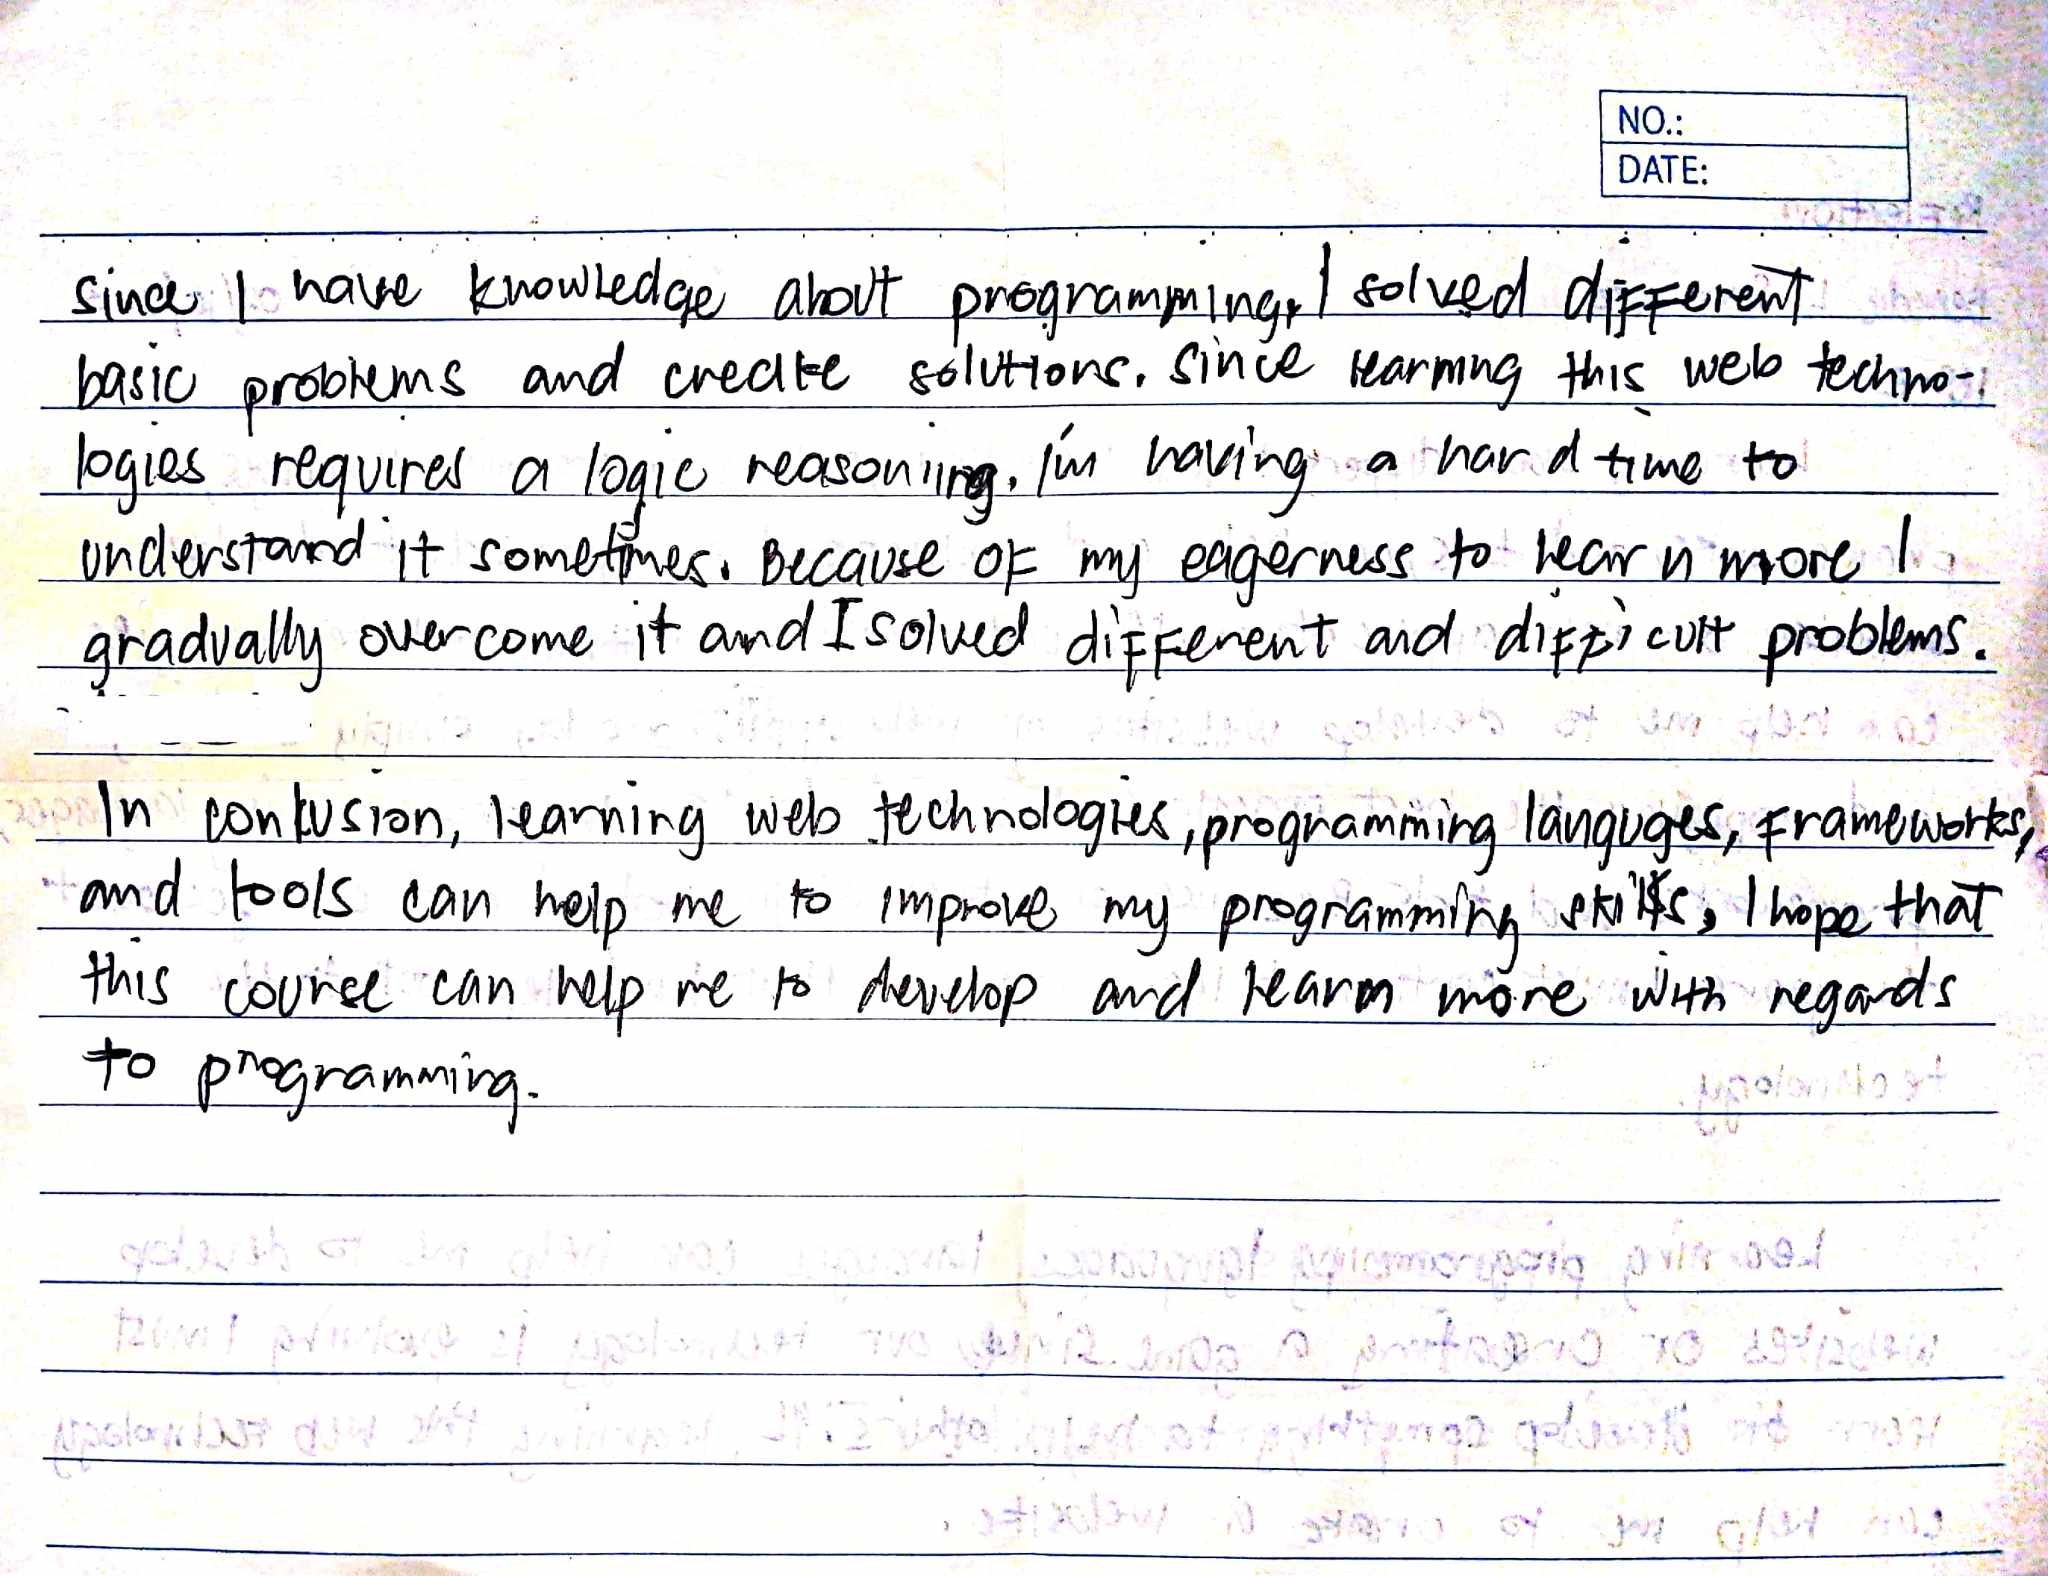 NO.:
DATE:
since I have knowledge about programming, I solved different
basic problems and create solutions. Since learning this web techno-
logies requires a logic reasoning. I'm having a hard time to
understand it sometimes. Because of my eagerness to learn more I
gradually overcome it and I solved different and difficult problems.
In conclusion, learning web technologies, programming languges, frameworks,
and tools can help me to improve my programming skills, I hope that
this course can help me to develop and learn more with regards
to programming.